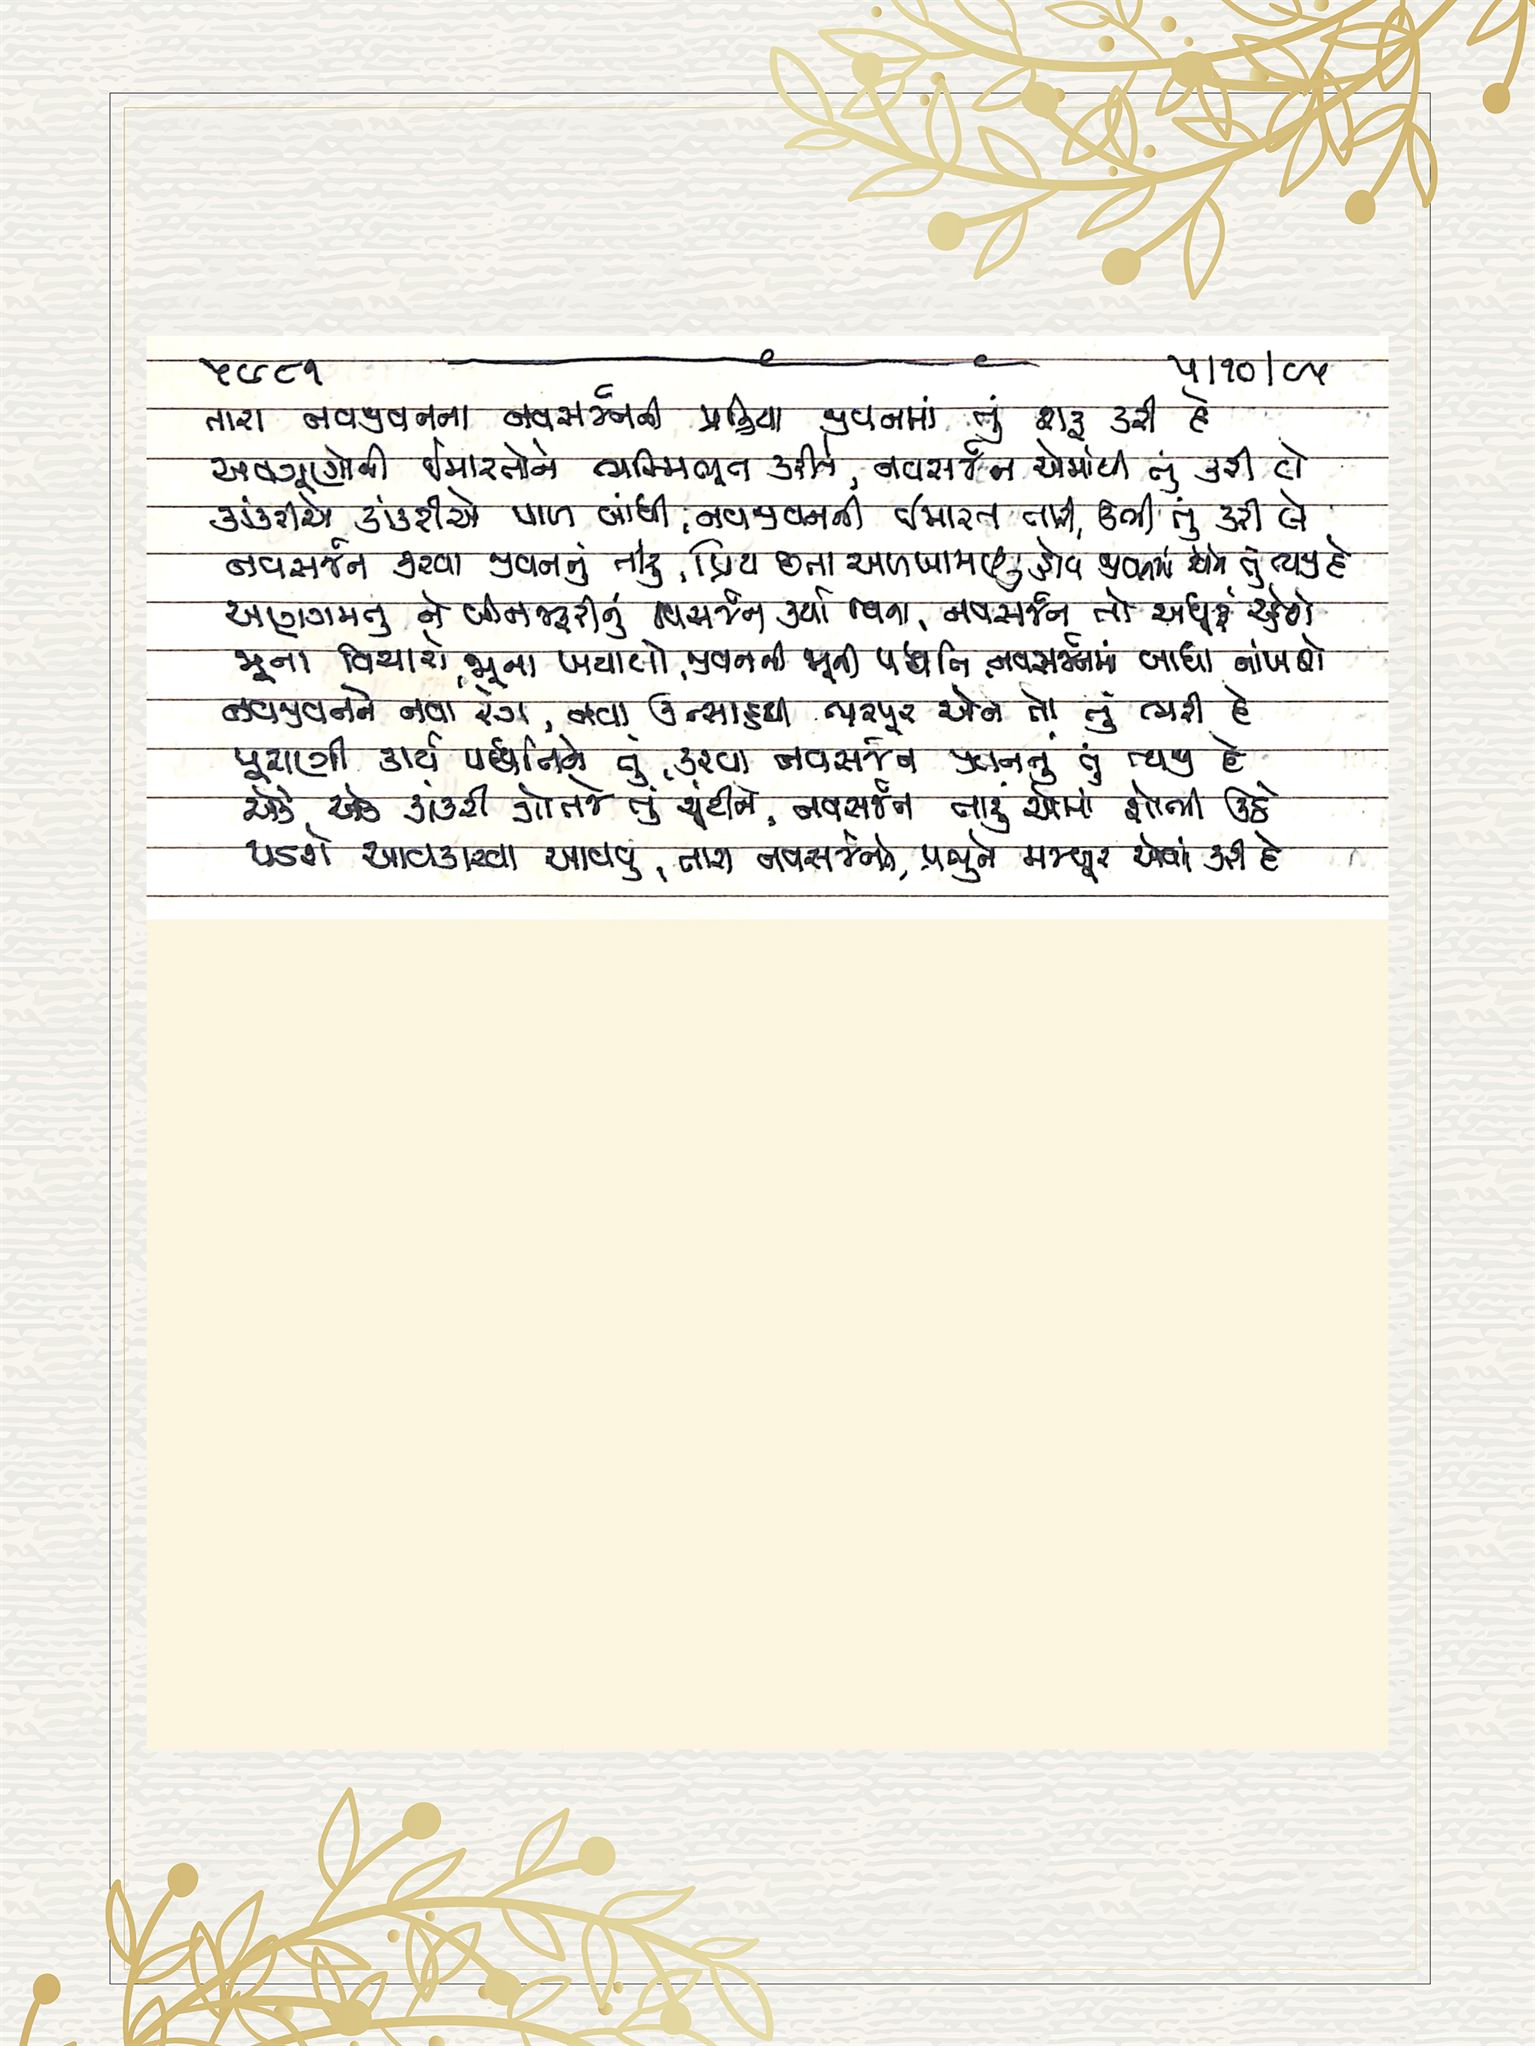 ૫૯૮૧ ૫/૧૦/૯૫
તારા નવજીવનના નવસર્જનની પ્રક્રિયા જીવનમાં તું શરૂ કરી દે
અવગૂણોની ઈમારતોને ભસ્મિભૂત કરીને, નવસર્જન એમાંથી તું કરી લે
કાંકરીએ કાંકરીએ પાળ બાંધી, નવજીવનની ઈમારત તારી, ઊભી તું કરી લે
નવસર્જન કરવા જીવનનું તારું, પ્રિય છતા અળખામણું હોય જીવનમાં એને તું ત્યજી દે
અણગમતું ને બીનજરૂરીનું વિસર્જન કર્યા વિના, નવસર્જન તો અધૂરું રહેશે
જૂના વિચારો, જૂના ખયાલો, જીવનની જૂની પધ્ધતિ, નવસર્જનમાં બાધા નાંખશે
નવજીવનને નવા રંગ, નવા ઉત્સાહથી ભરપૂર એને તો તું ભરી દે
પૂરાણી કાર્ય પધ્ધતિને તું, કરવા નવસર્જન જીવનનું તું ત્યજી દે
એકે એક કાંકરી ગોતજે તું ચૂંટીને, નવસર્જન તારું એમાં શોભી ઉઠે
પડશે આવકારવા આવવું, તારા નવસર્જનને, પ્રભુને મજબૂર એવાં કરી દે